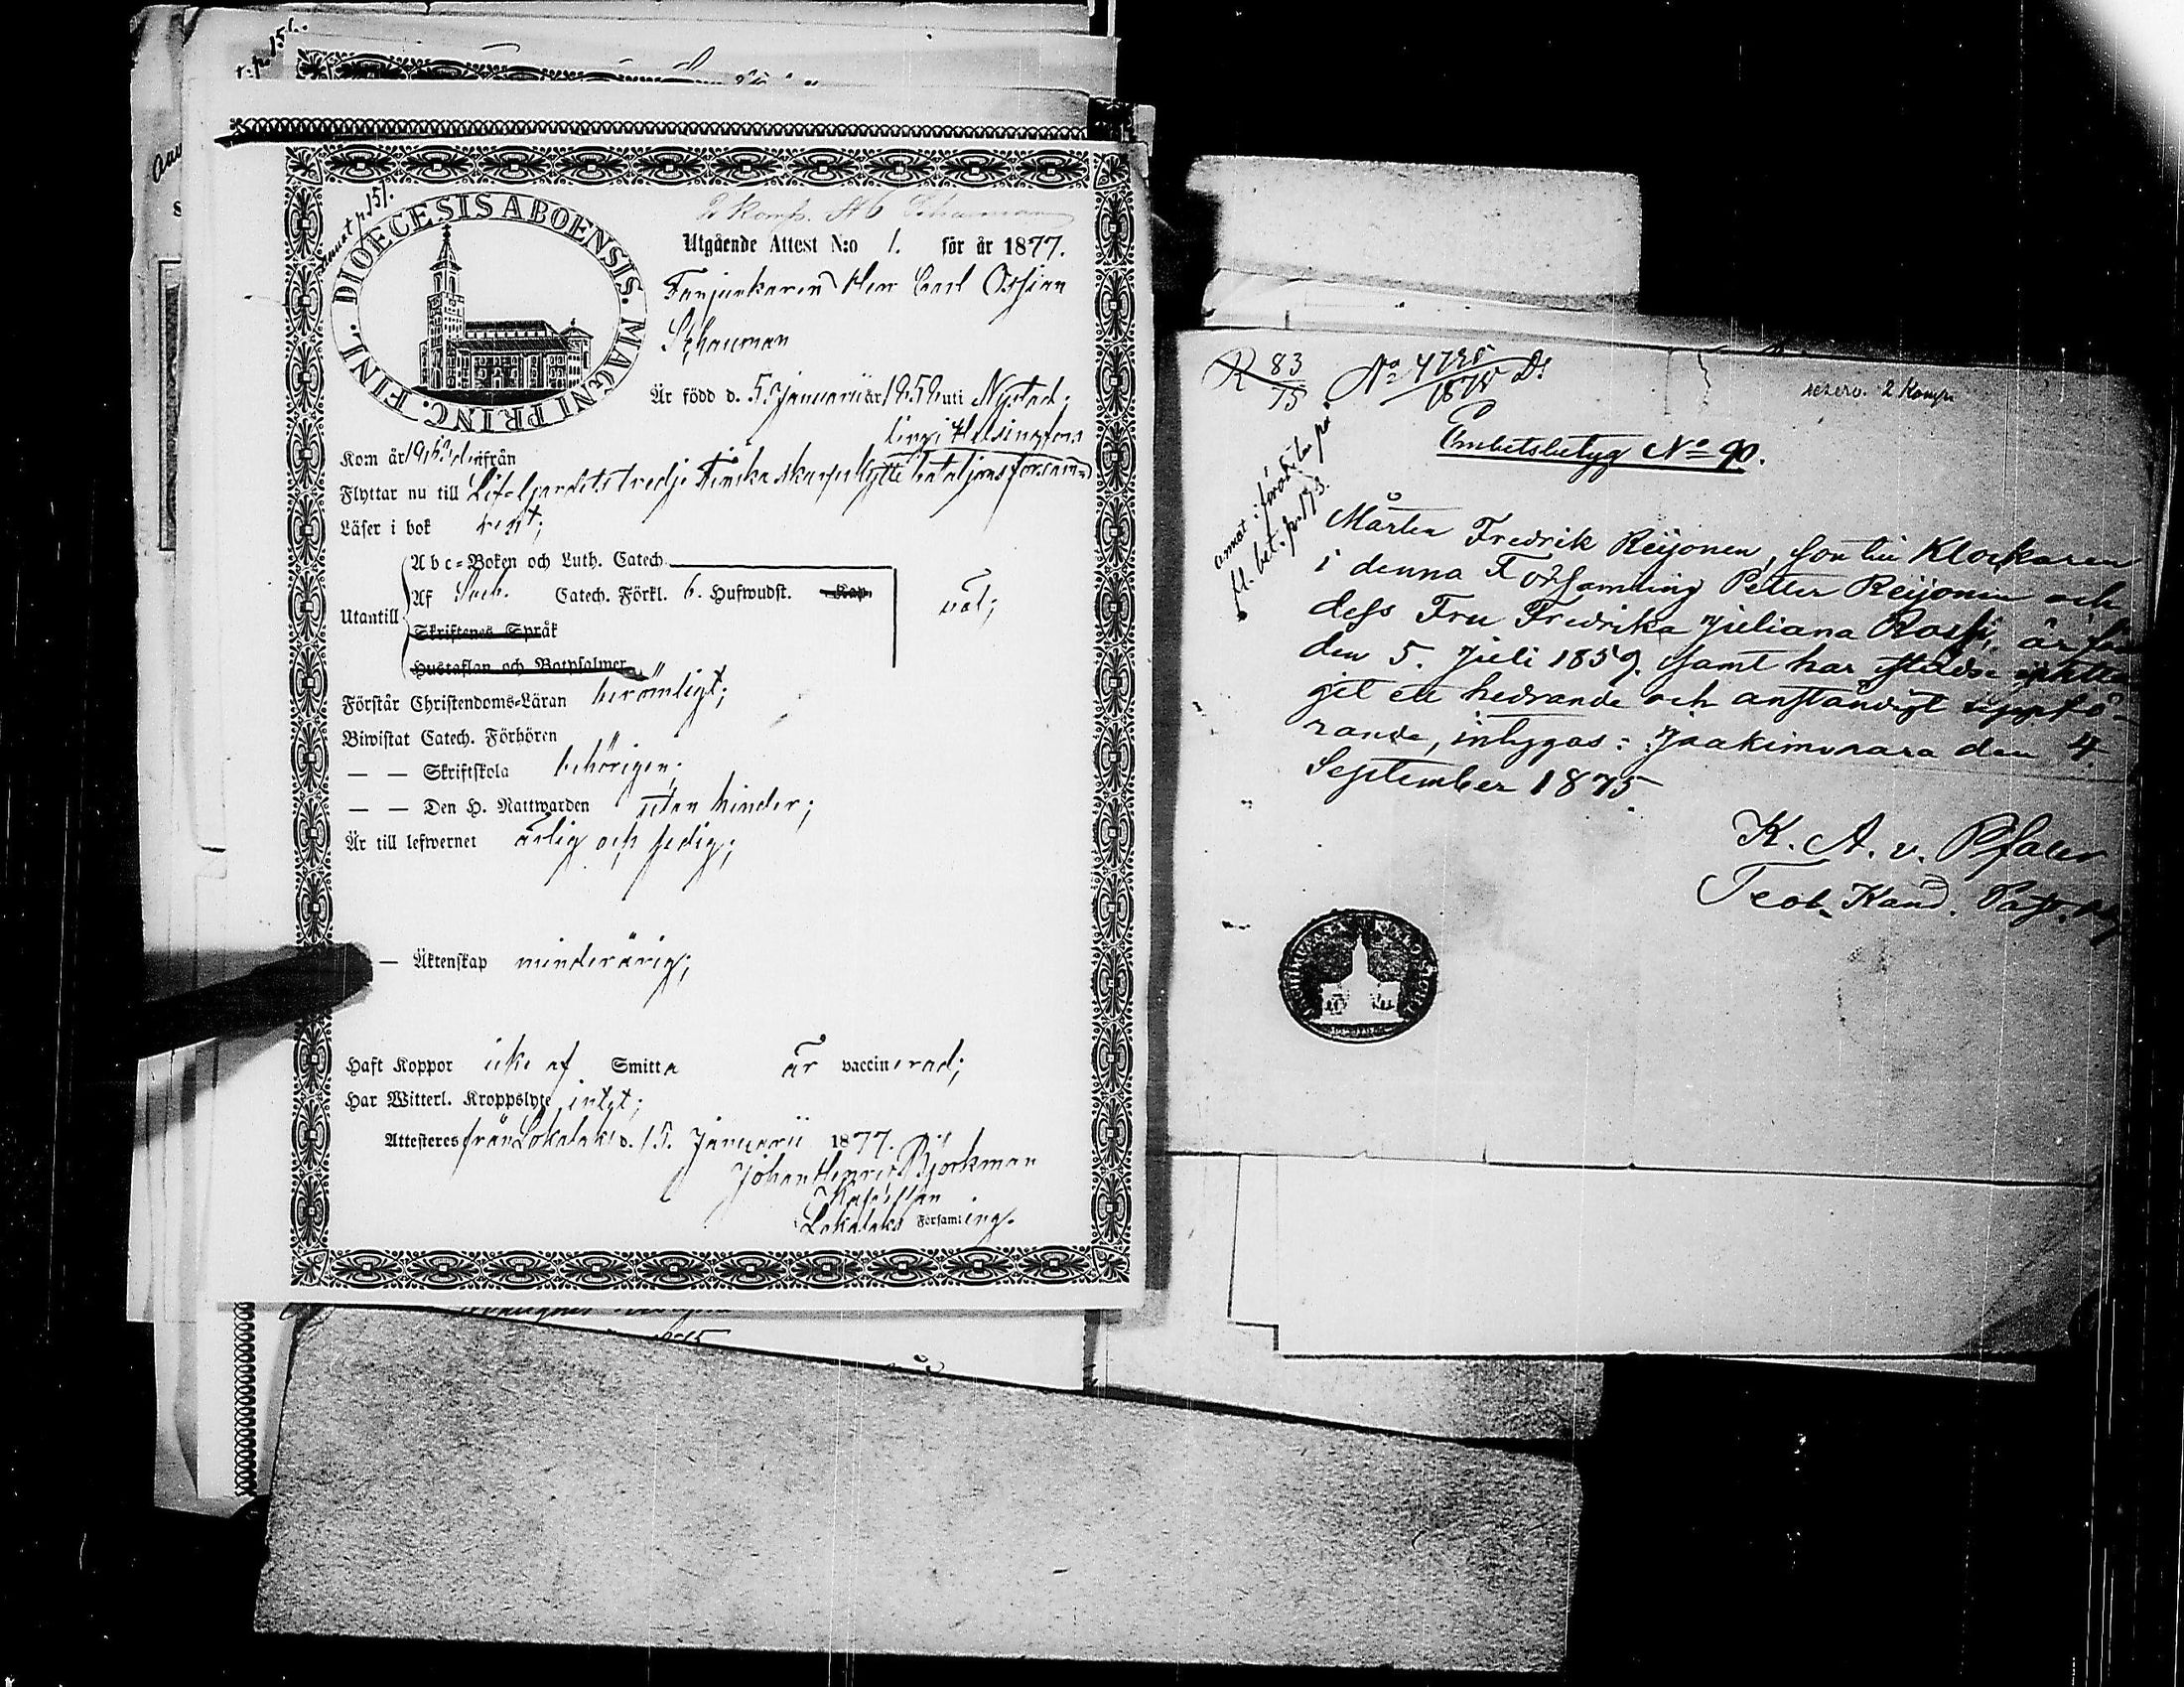 DIOECESIS ABOENSIS. MAGNI PRINC. FINL.
2 Komp. Schauman
Utgående Attest N:o 1. för år 1877.
Fanjunkaren Herr Carl Ossian
Schauman
Är född d. 5 Januarii år 1859 uti Nystad;
Kom år från
lingi Helsingfors
Flyttar nu till Lif-Gardets tredje Finska skarpskytte bataljons försam=
Läser i bok rent;
Utantill
Abc-Boken och Luth. Catech.
Af Sveb. Catech. Förkl. 6. Hufwudst. Kap.
väl;
Skriftenes Språk
Hustaflan och Botpsalmer
Förstår Christendoms-Läran berömligt;
Biwistat Catech. Förhören
— — Skriftskola behörigen;
— — Den H. Nattwarden utan hinder;
Är till lefwernet ärlig och sedig;
— Äktenskap minderårig;
Haft Koppor icke af Smitta är vaccinerad;
Har Witterl. Kroppslyte intet;
Attesteres från Lokalaks d. 15. Januarii 1877.
Johan Henric Björkman
Kapellan
Lokalaks Församling.
R 83
75
No 4798
1878 Ds
reserv. 2 Komp.
Embetsbetyg No 90.
annot. i
fl. bet. p. 173.
Mårten Fredrik Reijonen, son till Klockaren
i denna Församling Petter Reijonen och
dess Fru Fredrika Juliana Rossi, är född
den 5. Juli 1859. samt har städse
git ett hedrande och anständigt uppfö-
rande, intygas: Jaakimvaara den 4.
September 1875.
K. A. v. Pfaler
Teol. Kand. Past.